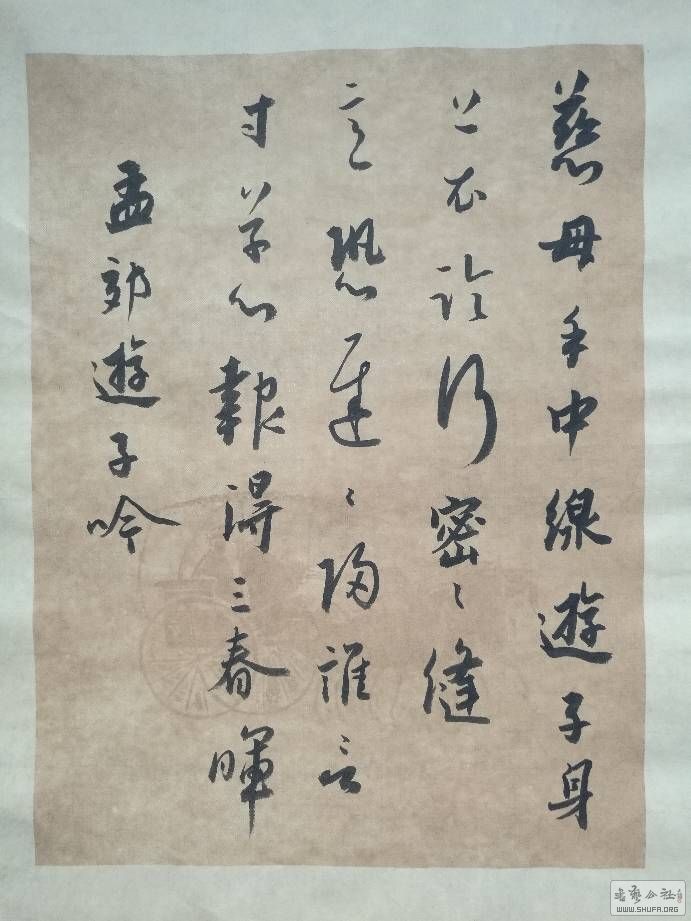 慈母手中線遊子身
上衣臨行密〻縫
意恐遲〻歸誰言
寸草心報得三春暉
孟郊遊子吟
書藝公社
WWW.SHUFA.ORG